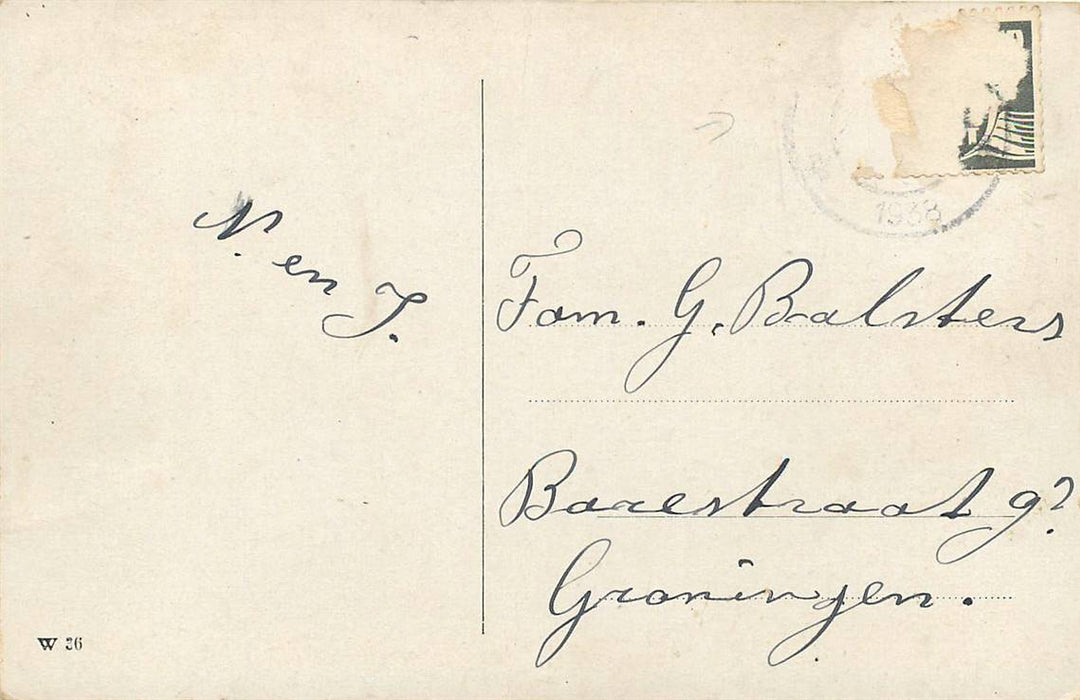 N. en J.
1938
Fam. G. Balsters
Barestraat 9?
Groningen.
W 36